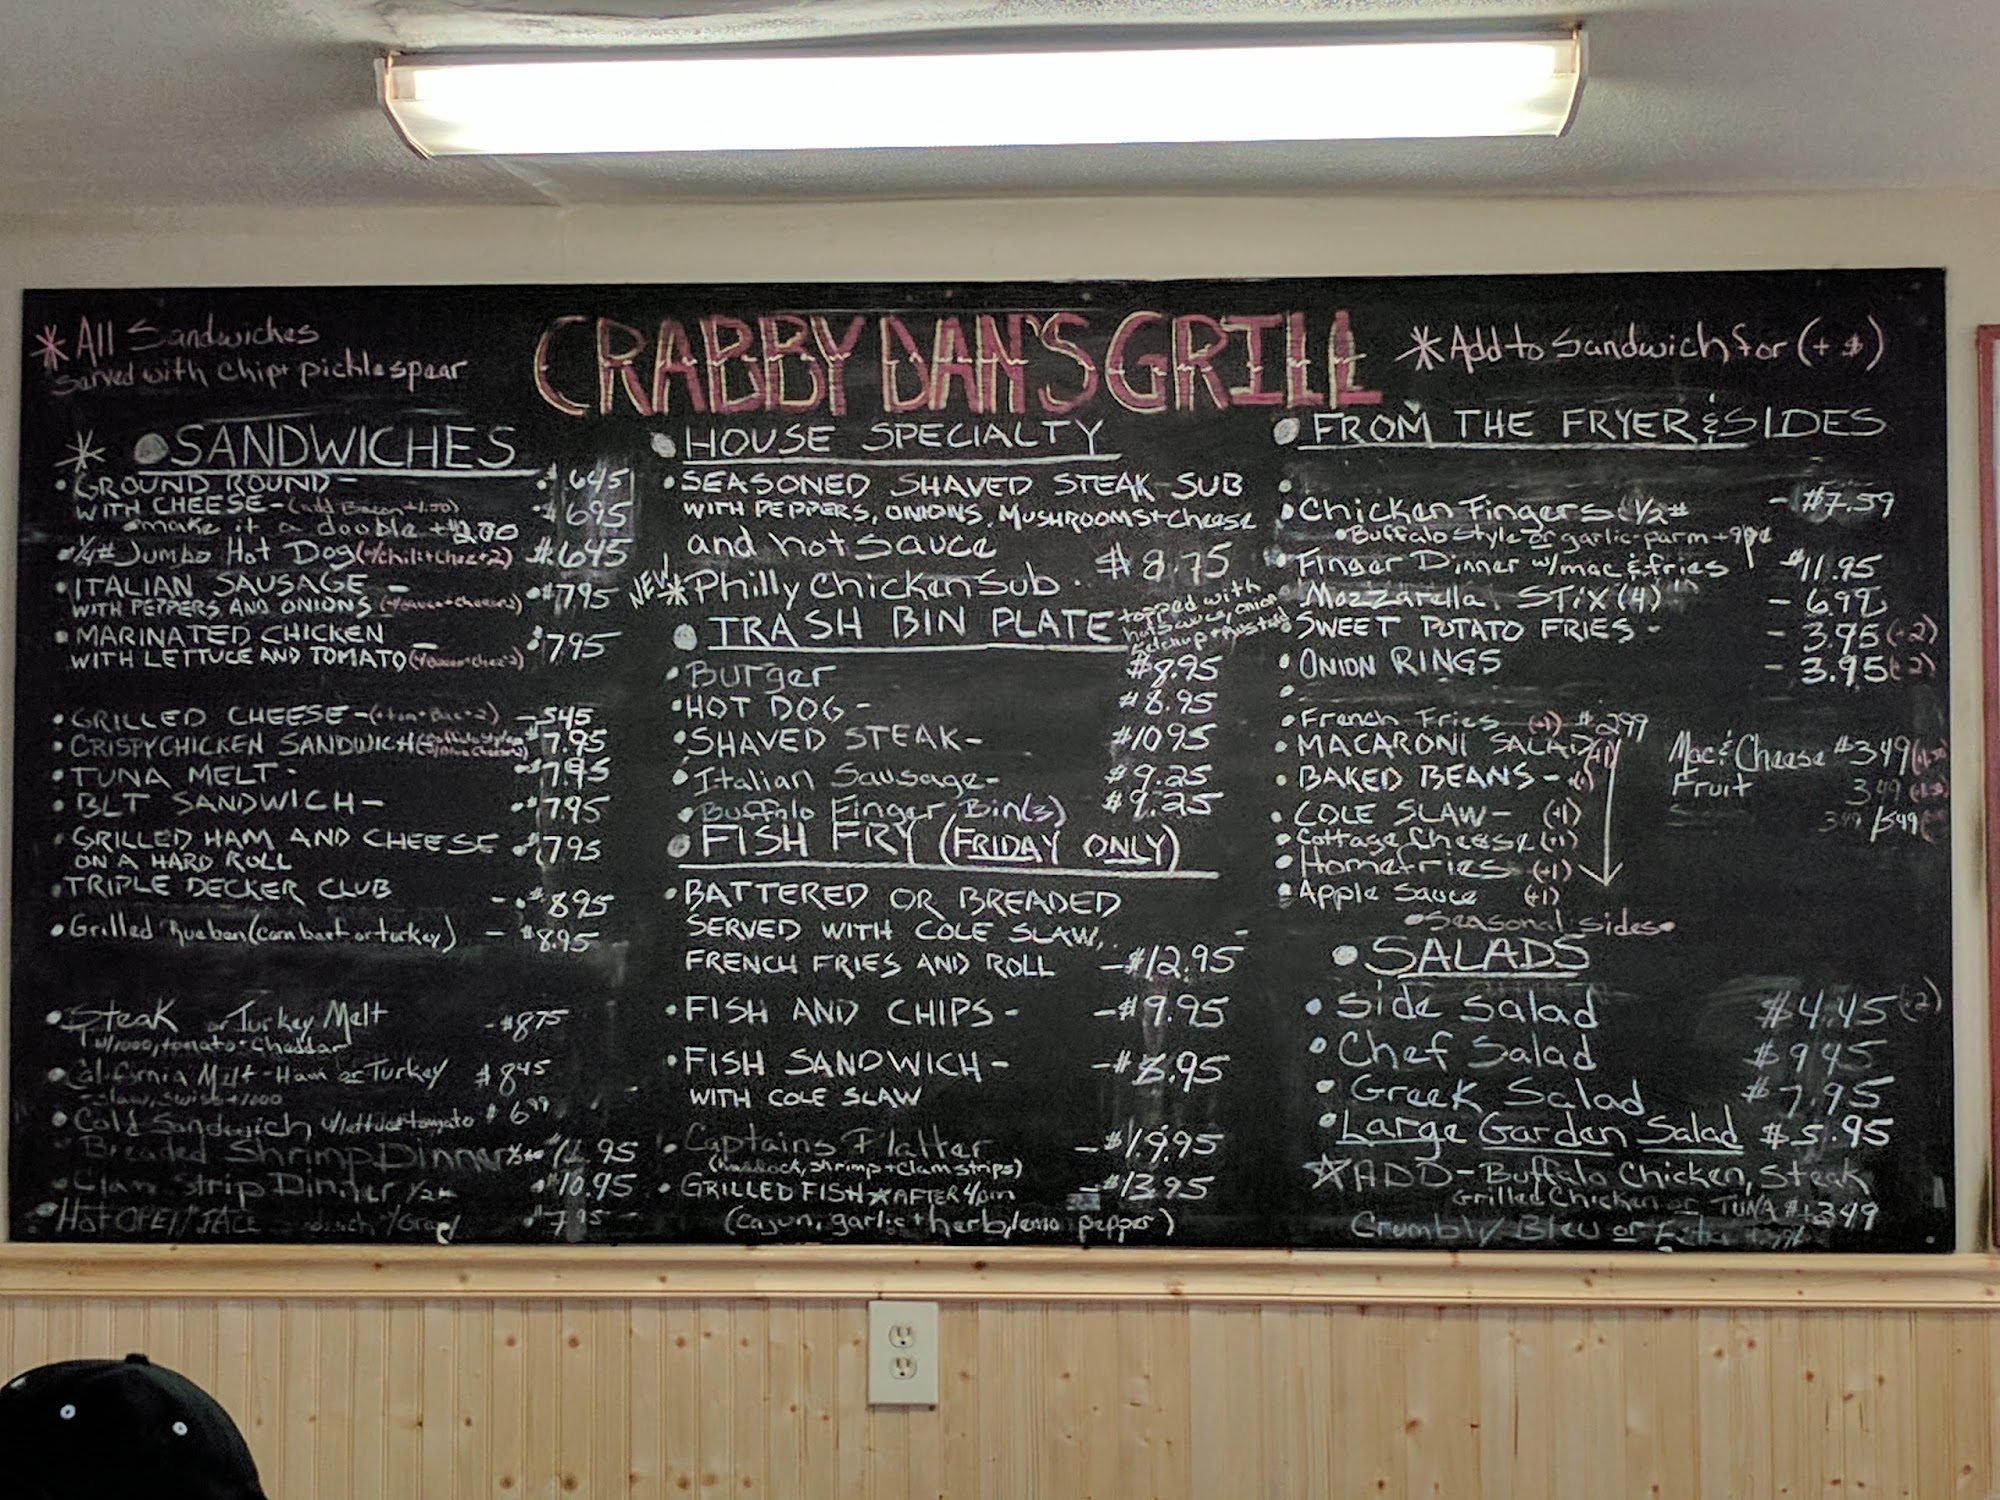 * All Sandwiches
served with chip + pickle spear
CRABBY DAN'S GRILL
* Add to sandwich for (+ $)
* • SANDWICHES
• GROUND ROUND - $6.45
WITH CHEESE - (add Bacon +1.50) $6.95
* make it a double + $2.00
• 1/4# Jumbo Hot Dog (w/chili + chez +2) $6.45
• ITALIAN SAUSAGE - $7.95
WITH PEPPERS AND ONIONS
• MARINATED CHICKEN
WITH LETTUCE AND TOMATO $7.95
• GRILLED CHEESE - 5.45
• CRISPY CHICKEN SANDWICH $7.95
• TUNA MELT - $7.95
• BLT SANDWICH - $7.95
• GRILLED HAM AND CHEESE $7.95
ON A HARD ROLL
• TRIPLE DECKER CLUB - $8.95
• Grilled Rueben (corn beef or turkey) - $8.95
• Steak or Turkey Melt - $8.75
tomato + cheddar
• California Melt - Ham or Turkey $8.45
• Cold Sandwich w/lettuce tomato $6.99
• Breaded Shrimp Dinner
• Clam Strip Dinner 1/2# $10.95
• Hot OPEN FACE $7.95
• HOUSE SPECIALTY
• SEASONED SHAVED STEAK SUB
WITH PEPPERS, ONIONS, MUSHROOMS + cheese
and hot sauce $8.75
NEW * Philly Chicken Sub
• TRASH BIN PLATE topped with
hot sauce, onion
ketchup + mustard
• Burger $8.95
• HOT DOG - $8.95
• SHAVED STEAK - $10.95
• Italian Sausage - $9.25
• Buffalo Finger Bin (3) $9.25
• FISH FRY (FRIDAY ONLY)
• BATTERED OR BREADED
SERVED WITH COLE SLAW,
FRENCH FRIES AND ROLL - $12.95
• FISH AND CHIPS - - $9.95
• FISH SANDWICH - - $8.95
WITH COLE SLAW
• Captains Platter - $19.95
(haddock, shrimp + clam strips)
• GRILLED FISH * AFTER 4pm - $13.95
(cajun, garlic + herb, lemon pepper)
• FROM THE FRYER & SIDES
• Chicken Fingers (1/2# - $7.59
• Buffalo Style or garlic-parm + 99¢
• Finger Dinner w/mac & fries $11.95
• Mozzarella STIX (4) - 6.99
• SWEET POTATO FRIES - - 3.95 (+2)
• ONION RINGS - 3.95 (+2)
• French Fries (+1) $2.99
• MACARONI SALAD (+1)
• BAKED BEANS - (+1)
• COLE SLAW - (+1)
• Cottage Cheese (+1)
• Homefries (+1)
• Apple Sauce (+1)
• Seasonal sides •
Mac & Cheese $3.49 (+1.50)
Fruit 3.49 (+1.50)
3.49/5.49
• SALADS
• Side Salad $4.45 (+2)
• Chef Salad $9.45
• Greek Salad $7.95
• Large Garden Salad $5.95
* ADD - Buffalo Chicken, Steak
Grilled Chicken or TUNA $+3.49
Crumbly Bleu or Feta